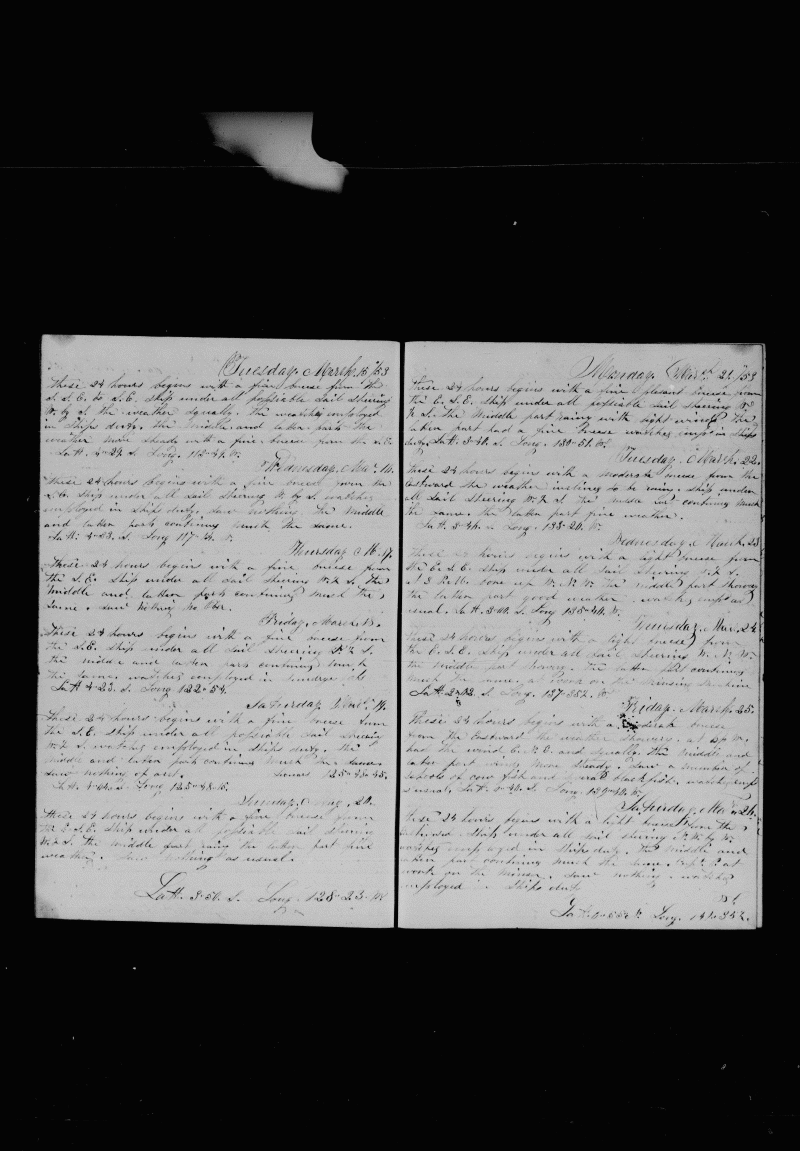 Tuesday. March. 15 /53
These 24 hours begins with a fine breese from the
S. S. E. to S. E. ship under all possiable sail stearing
W. by S. the weather squally. the watches employed
in Ships duty. the middle and latter parts the
weather more steady with a fine breese from the S. E.
Latt. 4-24. S. Long. 112-41. W.
Wednesday. Mar. 16.
These 24 hours begins with a fine breese from the
S. E. Ship under all sail stearing W. by S. watches
employed in ships duty. saw nothing the middle
and latter parts continuing much the same.
Latt. 4-23. S. Long 117- W.
Thursday 17.
These 24 hours begins with a fine breese from
the S. E. Ship under all sail stearing W. & S. the
middle and latter parts continuing much the
same. saw nothing
Friday. March 18.
These 24 hours begins with a fine breese from
the S. E. Ship under all sail stearing W. & S.
the middle and latter parts continuing much
the same. watches employed in
Latt 4-23. S. Long 122-54.
Saturday. 19.
These 24 hours begins with a fine breese from
the S. E. Ship under all possiable sail stearing
W. & S. watches employed in Ships duty. the
middle and latter parts continuing much the same
saw nothing of
Latt. S. Long 125-48-15.
Sunday. 20.
These 24 hours begins with a fine breese from
the S. E. Ship under all possiable sail stearing
W. & S. the middle part rainy the latter part fine
weather. Saw nothing as usual.
Latt. 3-50. S. Long. 128-23. W
Monday. March 21 /53
These 24 hours begins with a fine pleasant breese from
the E. S. E. Ship under all possiable sail stearing W.
& S. the middle part rainy with light winds. The
latter part had a fine breese watches emp in ships
duty. Latt. 3-40. S. Long. 130-51. W.
Tuesday. March. 22.
These 24 hours begins with a moderate breese from the
Eastward the weather inclining to be rainy. Ship under
all sail stearing W. & S. the middle part continuing much
the same. the latter part fine weather.
Latt. 3-46. Long. 133-20. W.
Wednesday. March. 23
These 24 hours begins with a light breese from
the E. S. E. Ship under all sail stearing W. & S.
at 3 P.M. come up W. N. W. the middle part showery
the latter part good weather. watches employed as
usual. Latt. 3-00. S. Long 135-40. W.
Thursday. Mar. 24.
These 24 hours begins with a light breese from
the E. S. E. Ship under all sail stearing W. N. W.
the middle part showery. the latter part continuing
much the same. at work on the mincing machine
Latt. 2-02. S. Long. 137-352. W
Friday. March. 25.
These 24 hours begins with a moderate breese
from the Eastward the weather showery. at
had the wind E. N. E. and squally. the middle and
latter part winds more steady. saw a number of
schools of cow fish and several blackfish. watches emp
as usual. Latt. S. Long. 139-40. W.
Saturday. Mar. 26.
These 24 hours begins with a light breese from the
Eastward Ship under all sail stearing N. W. by W.
watches employed in Ships duty. the middle and
latter part continuing much the same. at
work on the mincer. saw nothing. watches
employed in Ships duty
Latt. 0-55 Long. 141-352.